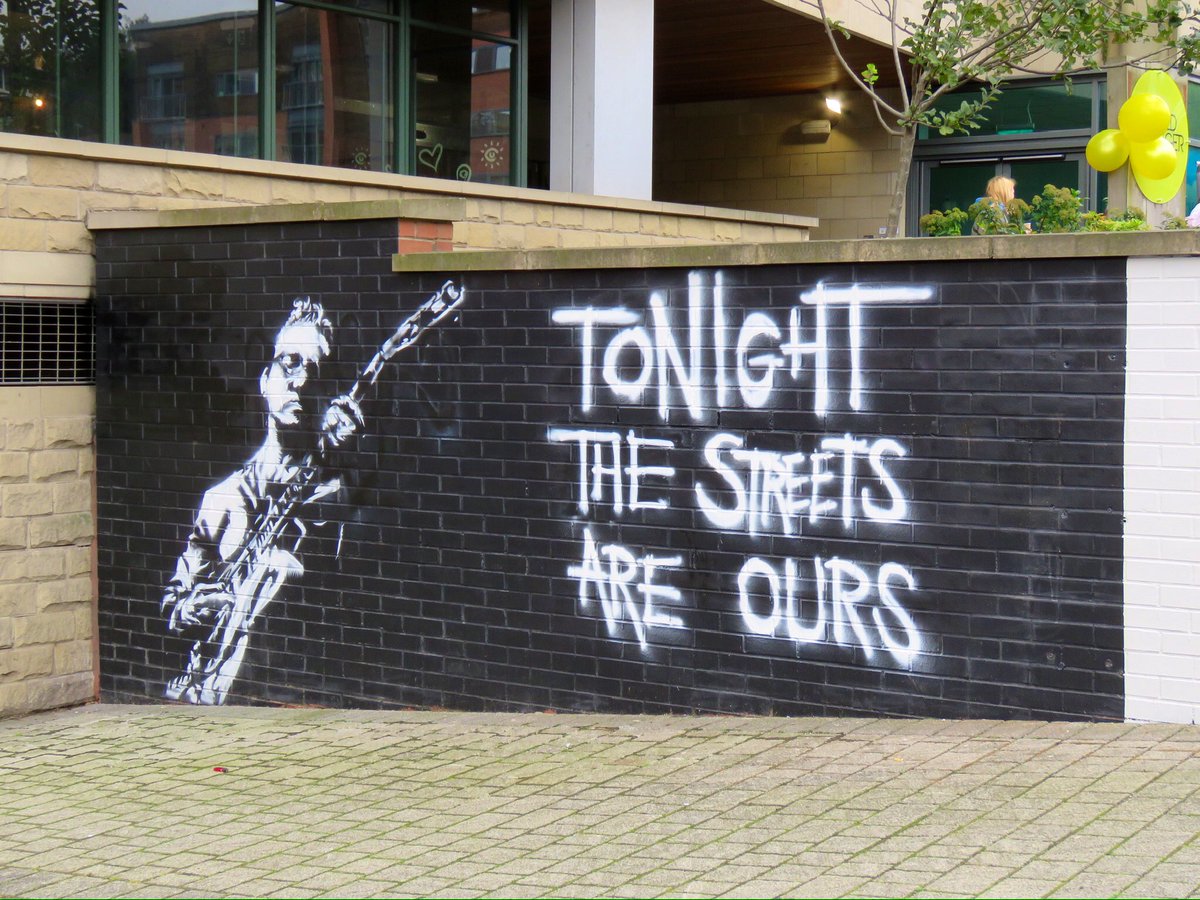 TONIGHT
THE STREETS
ARE OURS